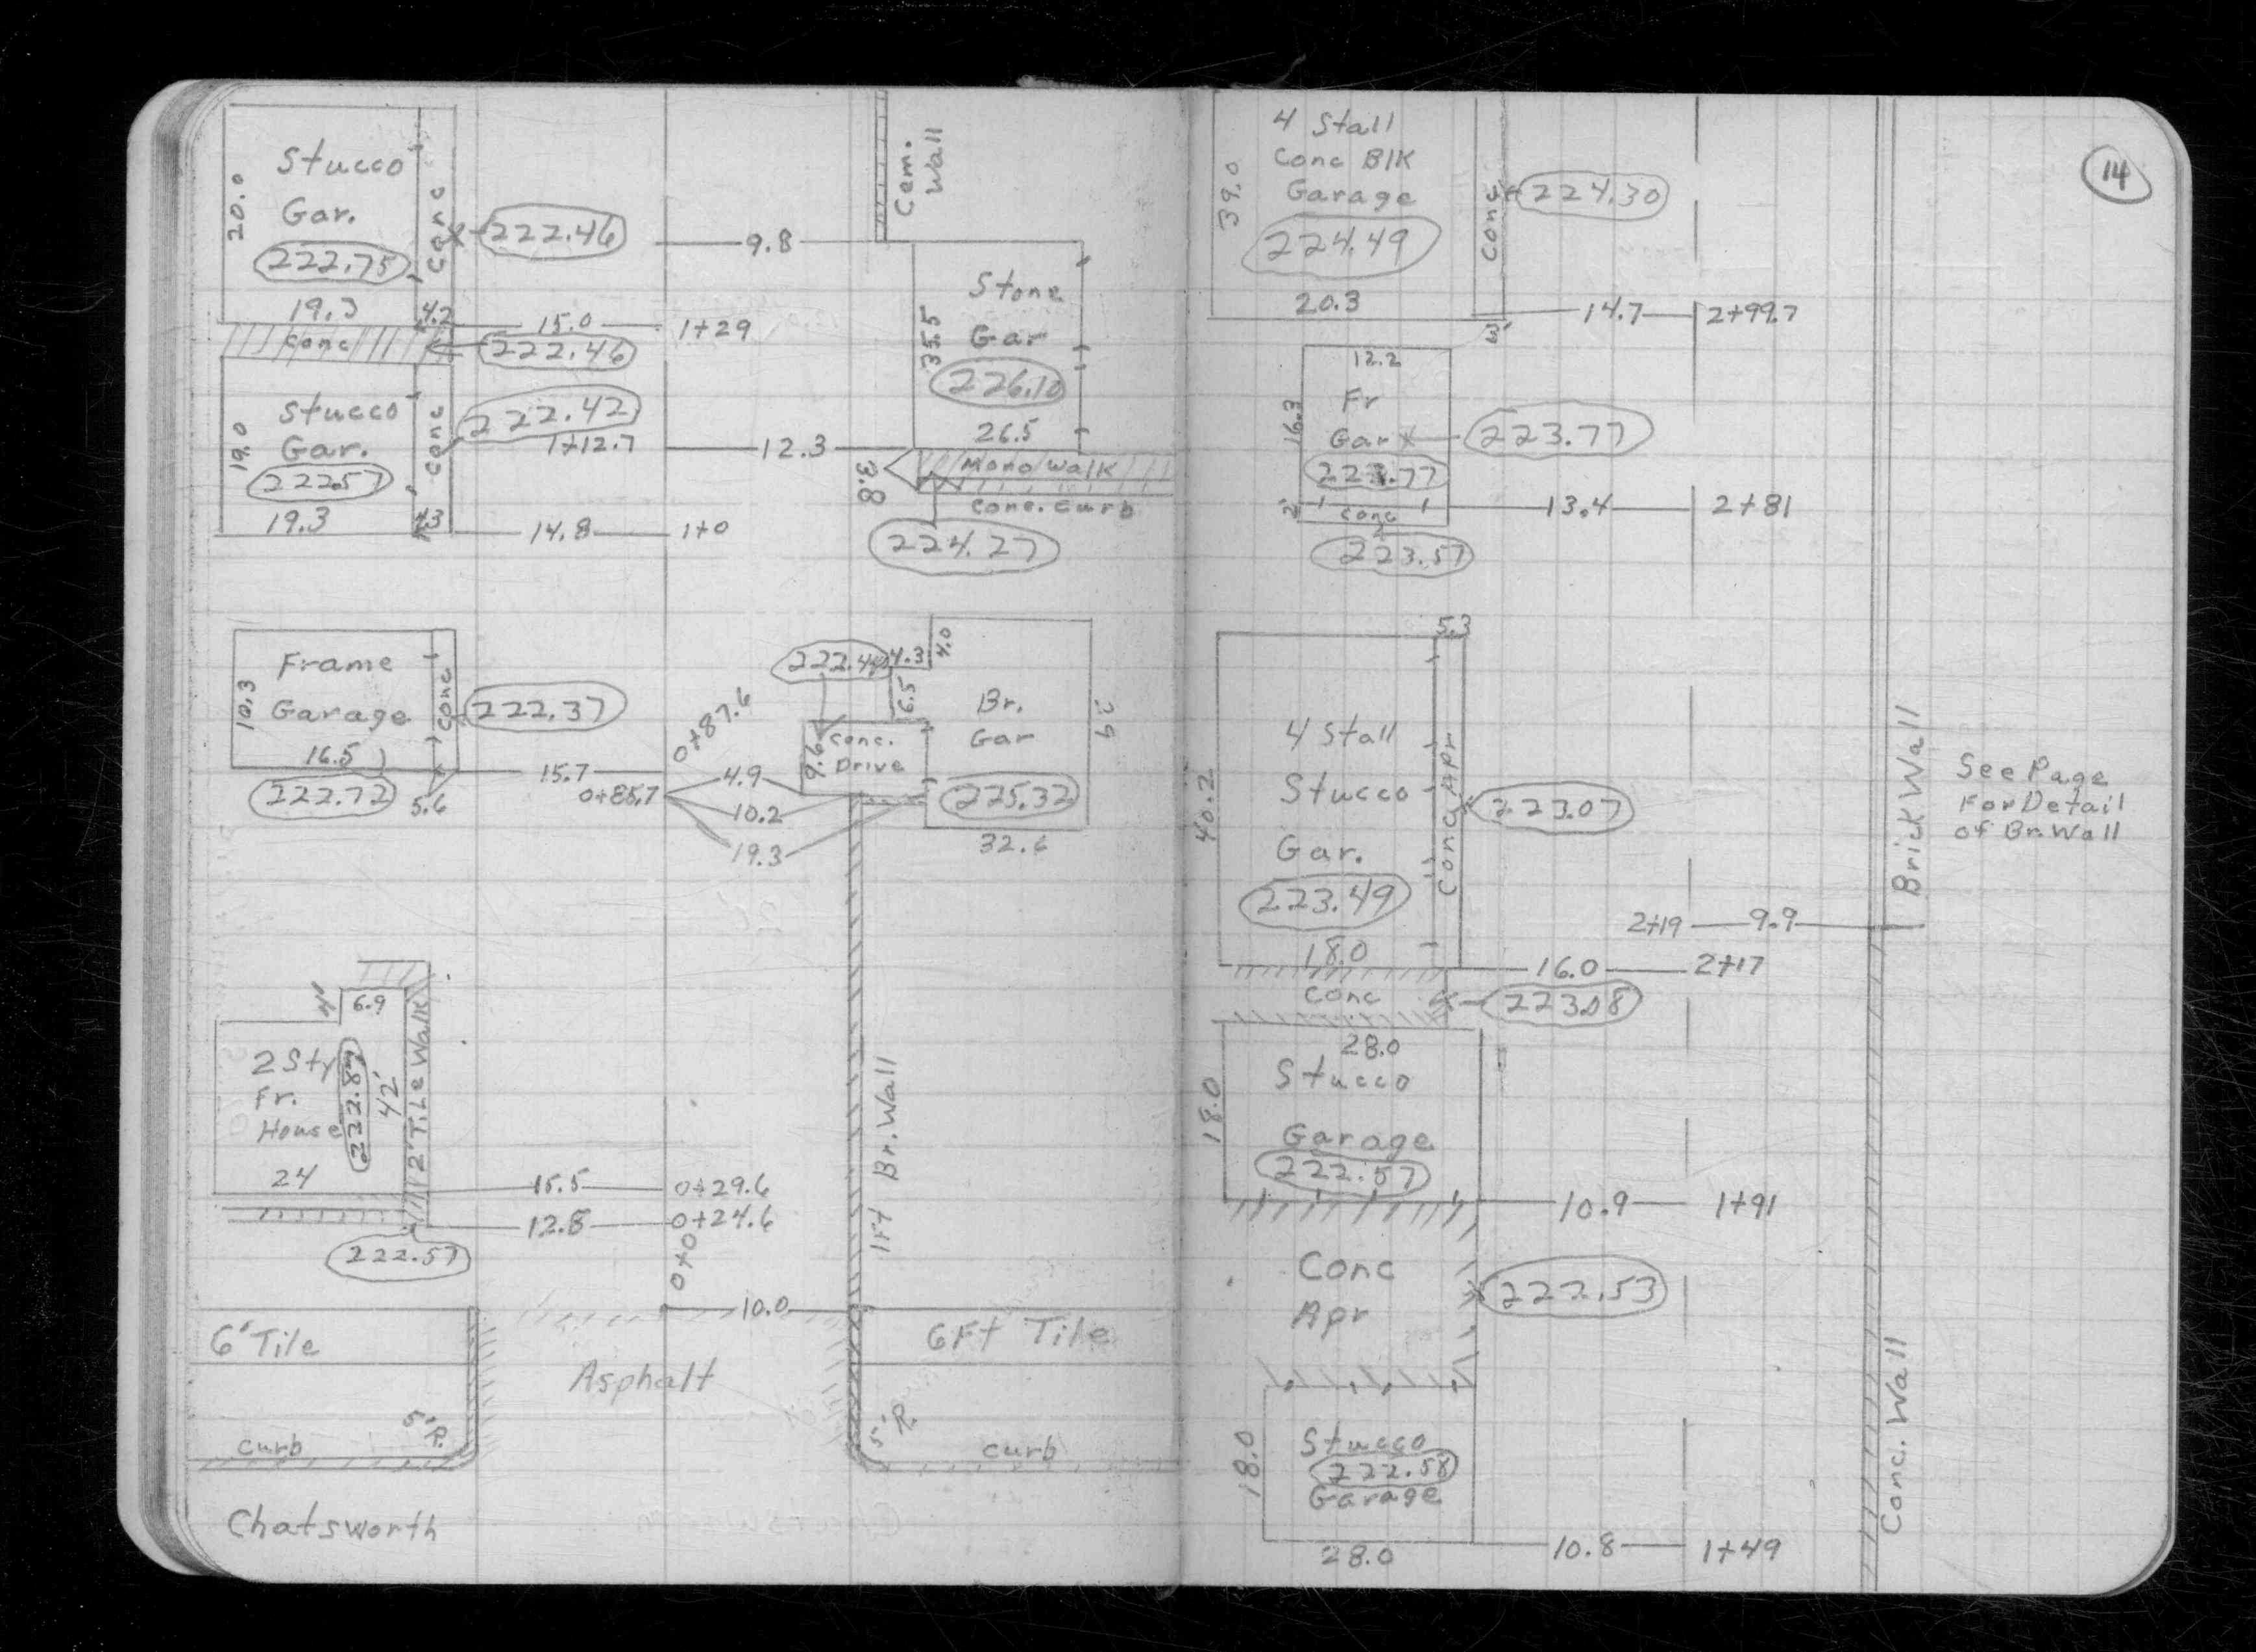 Stucco
Gar.
20.0
222.75
19.3
Conc
4.2
222.46
9.8
Cem.
Wall
15.0
1+29
Conc
222.46
Stone
Gar
35.5
226.10
26.5
Stucco
Gar.
19.0
222.57
19.3
Conc
4.3
222.42
1+12.7
12.3
3.8
Mono Walk
Conc. Curb
224.27
14.8
1+0
Frame
Garage
10.3
16.5
222.72
Conc
5.6
222.37
15.7
0+85.7
0+87.6
4.9
10.2
19.3
4.3
4.0
6.5
9.6
Conc.
Drive
Br.
Gar
225.32
29
4'
6.9
2 Sty
Fr.
House
222.8
42'
24
2' Tile Walk
15.5
0+29.6
12.8
0+24.6
222.57
0+0
10.0
1 Ft Br. Wall
6' Tile
Asphalt
6 Ft Tile
5' R.
5' R.
curb
curb
Chatsworth
14
4 Stall
Conc Blk
Garage
39.0
224.49
20.3
Conc
224.30
3'
14.7
2+99.7
12.2
Fr
Gar
16.3
223.77
223.77
2'
Conc
223.57
13.4
2+81
5.3
4 Stall
Stucco
Gar.
40.2
223.49
18.0
Conc Apr
223.07
Brick Wall
See Page
For Detail
of Br. Wall
2+19
9.9
16.0
2+17
Conc
223.08
28.0
Stucco
Garage
18.0
222.57
10.9
1+91
Conc
Apr
222.53
Stucco
222.58
Garage
18.0
28.0
10.8
1+49
Conc. Wall